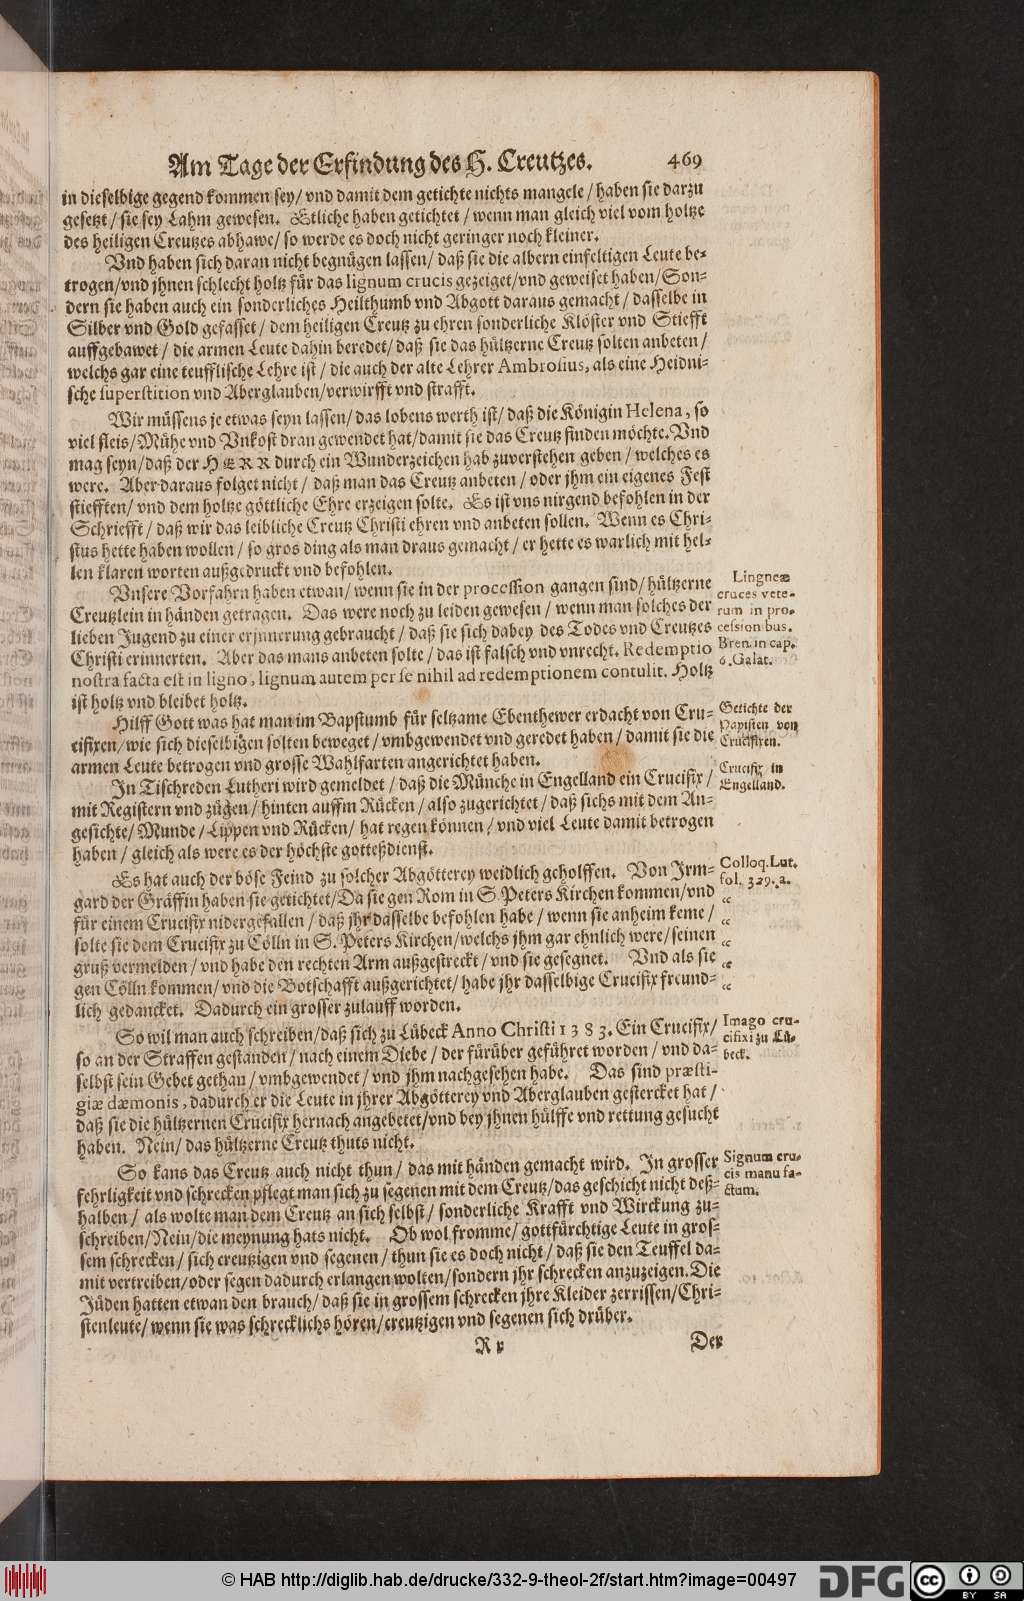 Am Tage der Erfindung des H. Creutzes. 469
in dieselbige gegend kommen sey/ vnd damit dem getichte nichts mangele/ haben sie darzu
gesetzt/ sie sey Lahm gewesen. Etliche haben getichtet/ wenn man gleich viel vom holtze
des heiligen Creutzes abhawe/ so werde es doch nicht geringer noch kleiner.
Vnd haben sich daran nicht begnügen lassen/ daß sie die albern einfeltigen Leute be-
trogen/ vnd jhnen schlecht holtz für das lignum crucis gezeiget/ vnd geweiset haben/ Son-
dern sie haben auch ein sonderliches Heilthumb vnd Abgott daraus gemacht/ dasselbe in
Silber vnd Gold gefasset/ dem heiligen Creutz zu ehren sonderliche Klöster vnd Stiefft
auffgebawet/ die armen Leute dahin beredet/ daß sie das hültzerne Creutz solten anbeten/
welchs gar eine teufflische Lehre ist/ die auch der alte Lehrer Ambrosius, als eine Heidni-
sche superstition vnd Aberglauben/ verwirfft vnd strafft.
Wir müssens je etwas seyn lassen/ das lobens werth ist/ daß die Königin Helena, so
viel fleis/ Mühe vnd Vnkost dran gewendet hat/ damit sie das Creutz finden möchte. Vnd
mag seyn/ daß der HERR durch ein Wunderzeichen hab zuverstehen geben/ welches es
were. Aber daraus folget nicht/ daß man das Creutz anbeten/ oder jhm ein eigenes Fest
stiefften/ vnd dem holtze göttliche Ehre erzeigen solte. Es ist vns nirgend befohlen in der
Schriefft/ daß wir das leibliche Creutz Christi ehren vnd anbeten sollen. Wenn es Chri-
stus hette haben wollen/ so gros ding als man draus gemacht/ er hette es warlich mit hel-
len klaren worten außgedruckt vnd befohlen.
Vnsere Vorfahrn haben etwan/ wenn sie in der procession gangen sind/ hültzerne
Creutzlein in händen getragen. Das were noch zu leiden gewesen/ wenn man solches der
lieben Jugend zu einer erjnnerung gebraucht/ daß sie sich dabey des Todes vnd Creutzes
Christi erinnerten. Aber das mans anbeten solte/ das ist falsch vnd vnrecht. Redemptio
nostra facta est in ligno, lignum autem per se nihil ad redemptionem contulit. Holtz
ist holtz vnd bleibet holtz.
Lingneæ
cruces vete-
rum in pro-
cessionibus.
Bren. in cap.
6. Galat.
Hilff Gott was hat man im Bapstumb für seltzame Ebenthewer erdacht von Cru-
cifixen/ wie sich dieselbigen solten beweget/ vmbgewendet vnd geredet haben/ damit sie die
armen Leute betrogen vnd grosse Wahlfarten angerichtet haben.
Getichte der
Papisten von
Crucifixen.
In Tischreden Lutheri wird gemeldet/ daß die Münche in Engelland ein Crucifix/
mit Registern vnd zügen/ hinten auffm Rücken/ also zugerichtet/ daß sichs mit dem An-
gesichte/ Munde/ Lippen vnd Rücken/ hat regen können/ vnd viel Leute damit betrogen
haben/ gleich als were es der höchste gotteßdienst.
Crucifix in
Engelland.
Es hat auch der böse Feind zu solcher Abgötterey weidlich geholffen. Von Irm-
gard der Gräffin haben sie getichtet/ Da sie gen Rom in S. Peters Kirchen kommen/ vnd
für einem Crucifix nidergefallen/ daß jhr dasselbe befohlen habe/ wenn sie anheim keme/
solte sie dem Crucifix zu Cölln in S. Peters Kirchen/ welchs jhm gar ehnlich were/ seinen
gruß vermelden/ vnd habe den rechten Arm außgestreckt/ vnd sie gesegnet. Vnd als sie
gen Cölln kommen/ vnd die Botschafft außgerichtet/ habe jhr dasselbige Crucifix freund-
lich gedancket. Dadurch ein grosser zulauff worden.
Colloq. Lut.
fol. 329. a.
“
“
“
“
“
So wil man auch schreiben/ daß sich zu Lübeck Anno Christi 1383. Ein Crucifix/
so an der Straffen gestanden/ nach einem Diebe/ der fürüber geführet worden/ vnd da-
selbst sein Gebet gethan/ vmbgewendet/ vnd jhm nachgesehen habe. Das sind præsti-
giæ dæmonis, dadurch er die Leute in jhrer Abgötterey vnd Aberglauben gestercket hat/
daß sie die hültzernen Crucifix hernach angebetet/ vnd bey jhnen hülffe vnd rettung gesucht
haben. Nein/ das hültzerne Creutz thuts nicht.
Imago cru-
cifixi zu Lü-
beck.
So kans das Creutz auch nicht thun/ das mit händen gemacht wird. In grosser
fehrligkeit vnd schrecken pflegt man sich zu segenen mit dem Creutz/ das geschicht nicht deß-
halben/ als wolte man dem Creutz an sich selbst/ sonderliche Krafft vnd Wirckung zu-
schreiben/ Nein/ die meynung hats nicht. Ob wol fromme/ gottfürchtige Leute in gros-
sem schrecken/ sich creutzigen vnd segenen/ thun sie es doch nicht/ daß sie den Teuffel da-
mit vertreiben/ oder segen dadurch erlangen wolten/ sondern jhr schrecken anzuzeigen. Die
Jüden hatten etwan den brauch/ daß sie in grossem schrecken jhre Kleider zerrissen/ Chri-
stenleute/ wenn sie was schrecklichs hören/ creutzigen vnd segenen sich drüber.
Signum cru-
cis manu fa-
ctum.
R r Der
© HAB http://diglib.hab.de/drucke/332-9-theol-2f/start.htm?image=00497
DFG
cc BY SA